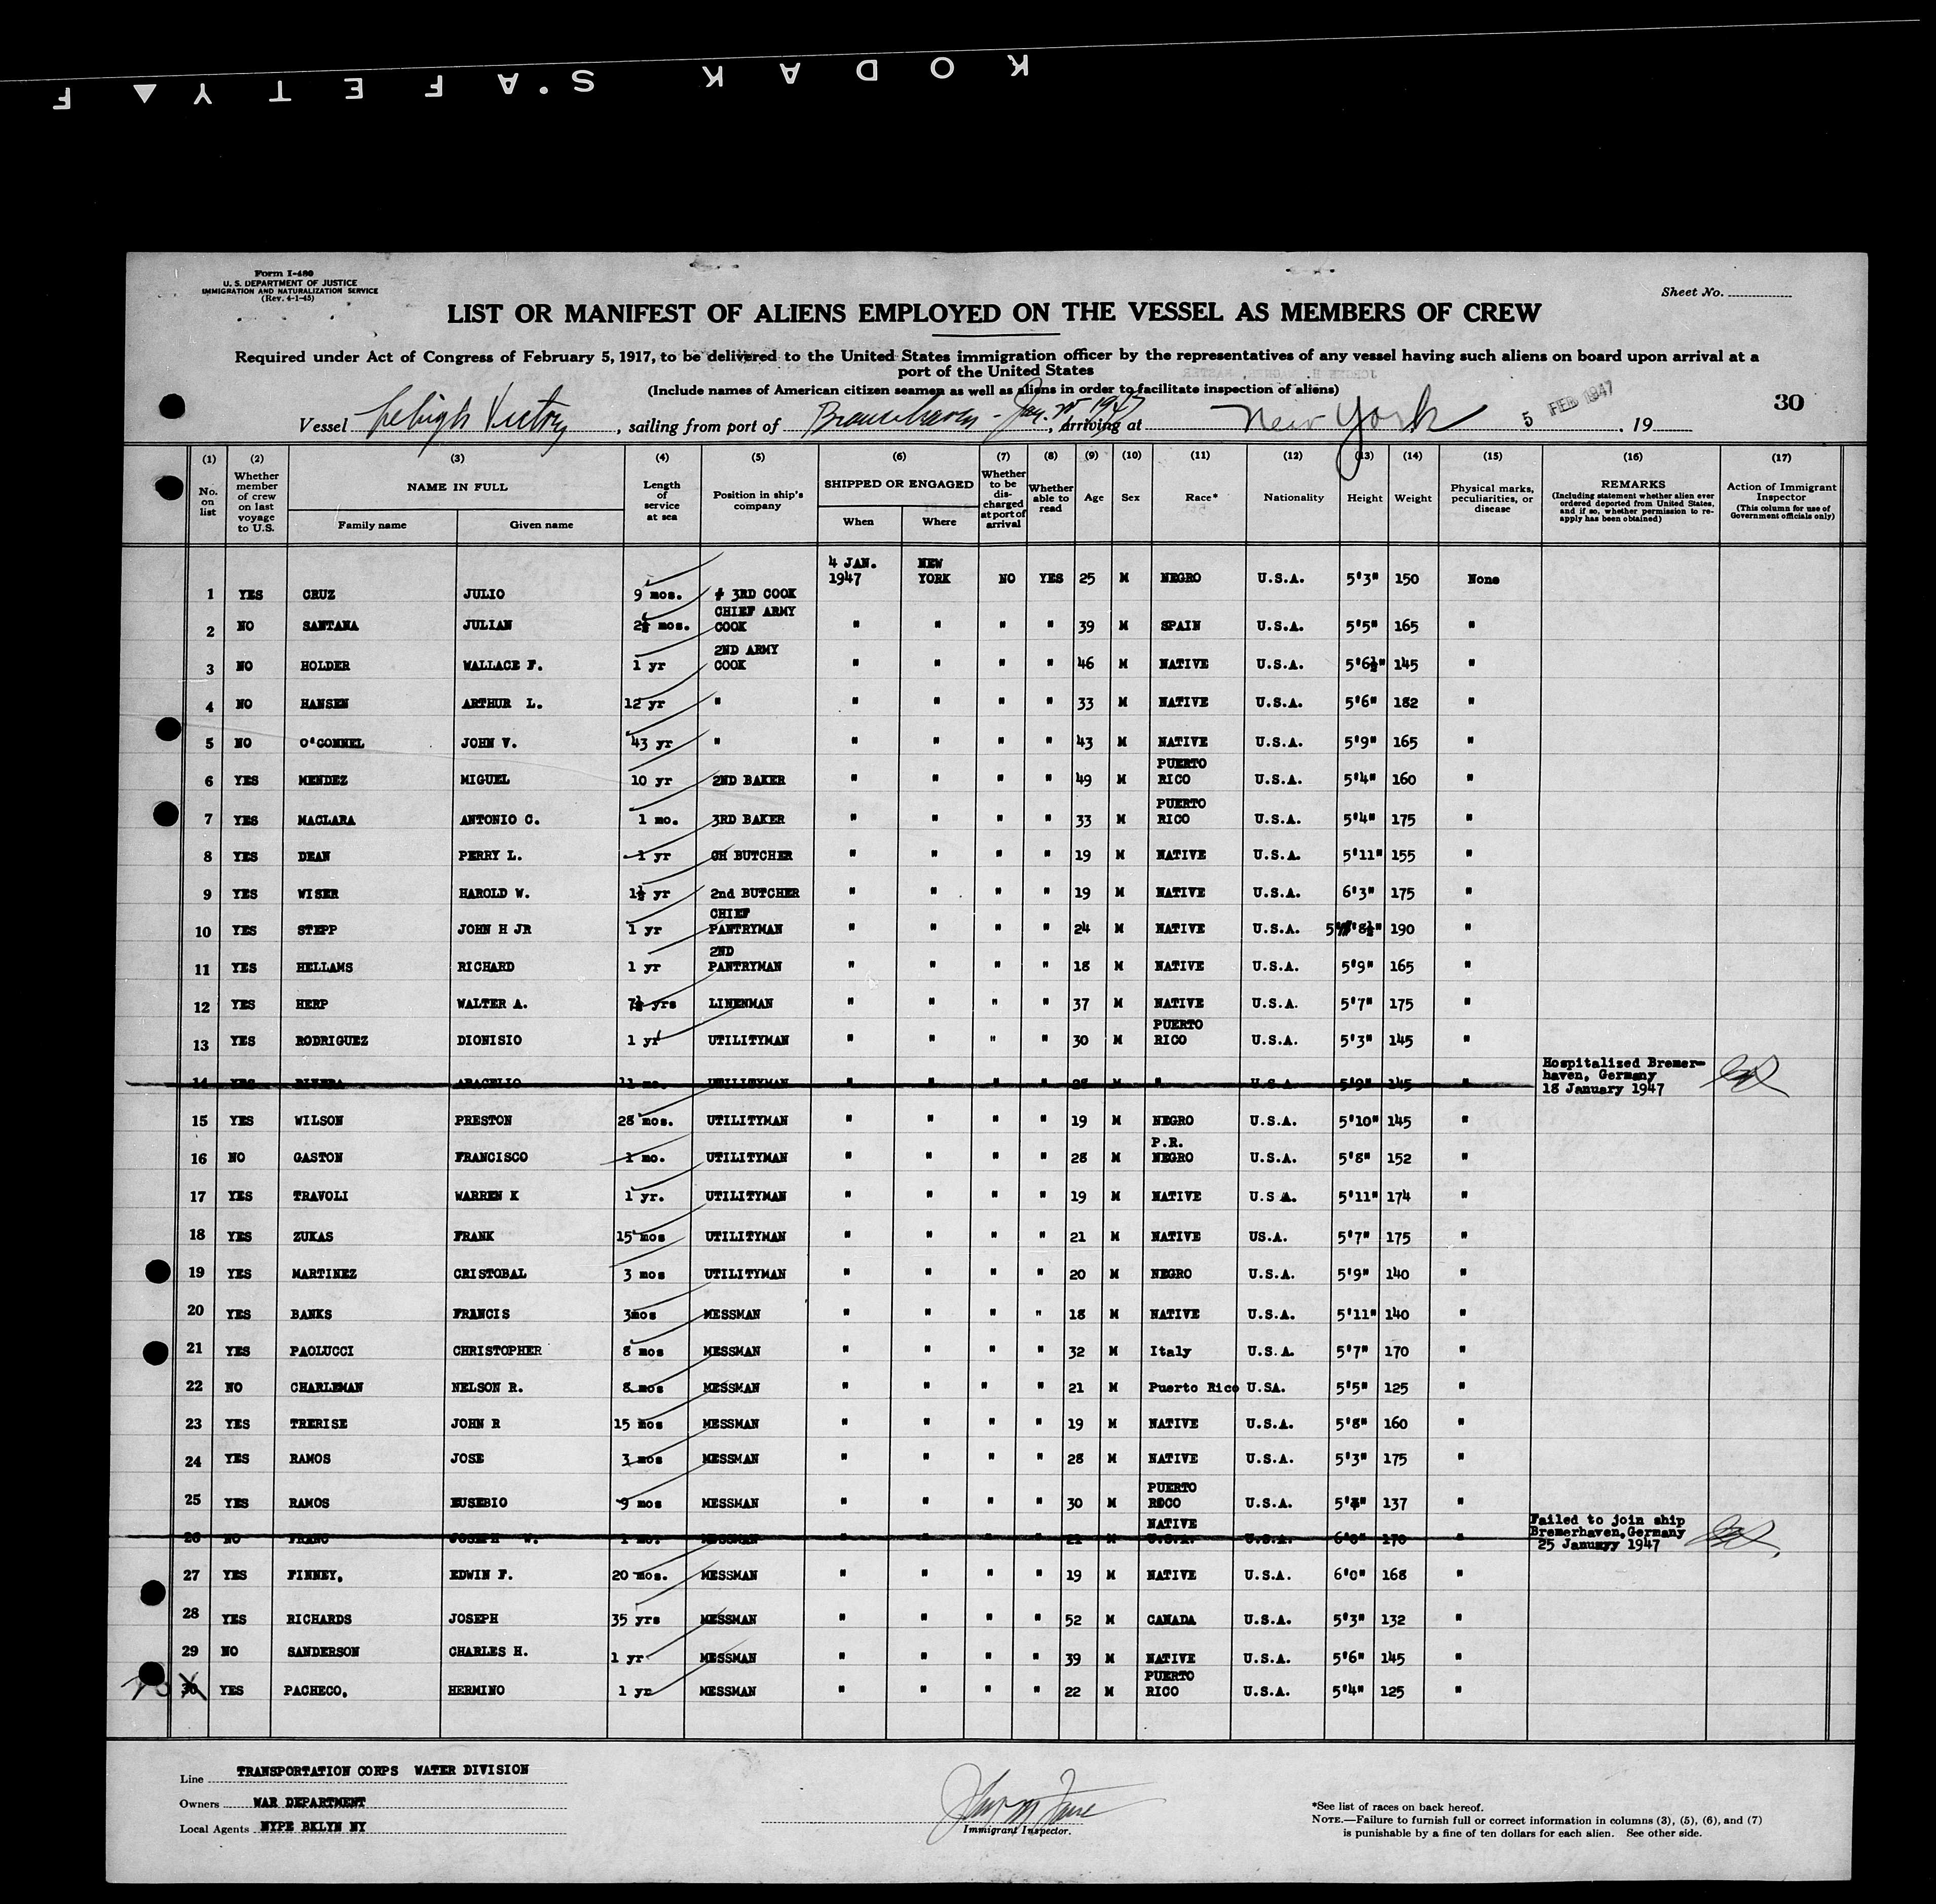 KODAK S.AFETY F
Form I-480
U. S. DEPARTMENT OF JUSTICE
IMMIGRATION AND NATURALIZATION SERVICE
(Rev. 4-1-45)
Sheet No.
LIST OR MANIFEST OF ALIENS EMPLOYED ON THE VESSEL AS MEMBERS OF CREW
Required under Act of Congress of February 5, 1917, to be delivered to the United States immigration officer by the representatives of any vessel having such aliens on board upon arrival at a
port of the United States
(Include names of American citizen seamen as well as aliens in order to facilitate inspection of aliens)
Vessel Lehigh Victory, sailing from port of Jan. 1947, arriving at New York 5 FEB 1947, 19 30
(1) No. on list (2) Whether member of crew on last voyage to U.S. (3) NAME IN FULL Family name Given name (4) Length of service at sea (5) Position in ship's company (6) SHIPPED OR ENGAGED When Where (7) Whether to be discharged at port of arrival (8) Whether able to read (9) Age (10) Sex (11) Race* (12) Nationality (13) Height (14) Weight (15) Physical marks, peculiarities, or disease (16) REMARKS (Including statement whether alien ever ordered deported from United States, and if so, whether permission to re-apply has been obtained) (17) Action of Immigrant Inspector (This column for use of Government officials only)
1 YES CRUZ JULIO 9 mos. 3RD COOK 4 JAN. 1947 NEW YORK NO YES 25 M NEGRO U.S.A. 5'3" 150 None
2 NO SANTANA JULIAN 2½ mos. CHIEF ARMY COOK " " " " 39 M SPAIN U.S.A. 5'5" 165 "
3 NO HOLDER WALLACE F. 1 yr 2ND ARMY COOK " " " " 46 M NATIVE U.S.A. 5'6½" 145 "
4 NO HANSEN ARTHUR L. 12 yr " " " " " 33 M NATIVE U.S.A. 5'6" 182 "
5 NO O'CONNEL JOHN V. 43 yr " " " " " 43 M NATIVE U.S.A. 5'9" 165 "
6 YES MENDEZ MIGUEL 10 yr 2ND BAKER " " " " 49 M PUERTO RICO U.S.A. 5'4" 160 "
7 YES MACLARA ANTONIO C. 1 mo. 3RD BAKER " " " " 33 M PUERTO RICO U.S.A. 5'4" 175 "
8 YES DEAN PERRY L. 1 yr CH BUTCHER " " " " 19 M NATIVE U.S.A. 5'11" 155 "
9 YES WISER HAROLD W. 1½ yr 2nd BUTCHER " " " " 19 M NATIVE U.S.A. 6'3" 175 "
10 YES STEPP JOHN H JR 1 yr CHIEF PANTRYMAN " " " " 24 M NATIVE U.S.A 5'8½" 190 "
11 YES HELLAMS RICHARD 1 yr 2ND PANTRYMAN " " " " 18 M NATIVE U.S.A. 5'9" 165 "
12 YES HERP WALTER A. 7½ yrs LINENMAN " " " " 37 M NATIVE U.S.A. 5'7" 175 "
13 YES RODRIGUEZ DIONISIO 1 yr UTILITYMAN " " " " 30 M PUERTO RICO U.S.A. 5'3" 145 "
14 YES RIVERA 11 mo. UTILITYMAN " " " " 28 M " U.S.A 5'9" 145 " Hospitalized Bremer-haven, Germany 18 January 1947
15 YES WILSON PRESTON 28 mos. UTILITYMAN " " " " 19 M NEGRO U.S.A. 5'10" 145 "
16 NO GASTON FRANCISCO 1 mo. UTILITYMAN " " " " 28 M P.R. NEGRO U.S.A. 5'8" 152 "
17 YES TRAVOLI WARREN K 1 yr. UTILITYMAN " " " " 19 M NATIVE U.S A. 5'11" 174 "
18 YES ZUKAS FRANK 15 mos UTILITYMAN " " " " 21 M NATIVE US.A. 5'7" 175 "
19 YES MARTINEZ CRISTOBAL 3 mos UTILITYMAN " " " " 20 M NEGRO U.S.A. 5'9" 140 "
20 YES BANKS FRANCIS 3mos MESSMAN " " " " 18 M NATIVE U.S.A. 5'11" 140 "
21 YES PAOLUCCI CHRISTOPHER 8 mos MESSMAN " " " " 32 M Italy U.S.A. 5'7" 170 "
22 NO CHARLEMAN NELSON R. 8 mos MESSMAN " " " " 21 M Puerto Rico U.SA. 5'5" 125 "
23 YES TRERISE JOHN R 15 mos MESSMAN " " " " 19 M NATIVE U.S.A. 5'8" 160 "
24 YES RAMOS JOSE 3 mos MESSMAN " " " " 28 M NATIVE U.S.A. 5'3" 175 "
25 YES RAMOS EUSEBIO 9 mos MESSMAN " " " " 30 M PUERTO RICO U.S.A. 137 "
26 NO FRANO JOSEPH W. 1 mo. MESSMAN " " " " 21 M NATIVE U.S.A. U.S.A. 6'0" 170 " Failed to join ship Bremerhaven,Germany 25 Januayy 1947
27 YES FINNEY, EDWIN F. 20 mos. MESSMAN " " " " 19 M NATIVE U.S.A. 6'0" 168 "
28 YES RICHARDS JOSEPH 35 yrs MESSMAN " " " " 52 M CANADA U.S.A. 5'3" 132 "
29 NO SANDERSON CHARLES H. 1 yr MESSMAN " " " " 39 M NATIVE U.S.A. 5'6" 145 "
30 YES PACHECO, HERMINO 1 yr MESSMAN " " " " 22 M PUERTO RICO U.S.A. 5'4" 125 "
Line TRANSPORTATION CORPS WATER DIVISION
Owners WAR DEPARTMENT
Local Agents NYPE BKLYN NY
Immigrant Inspector.
*See list of races on back hereof.
NOTE.—Failure to furnish full or correct information in columns (3), (5), (6), and (7)
is punishable by a fine of ten dollars for each alien. See other side.